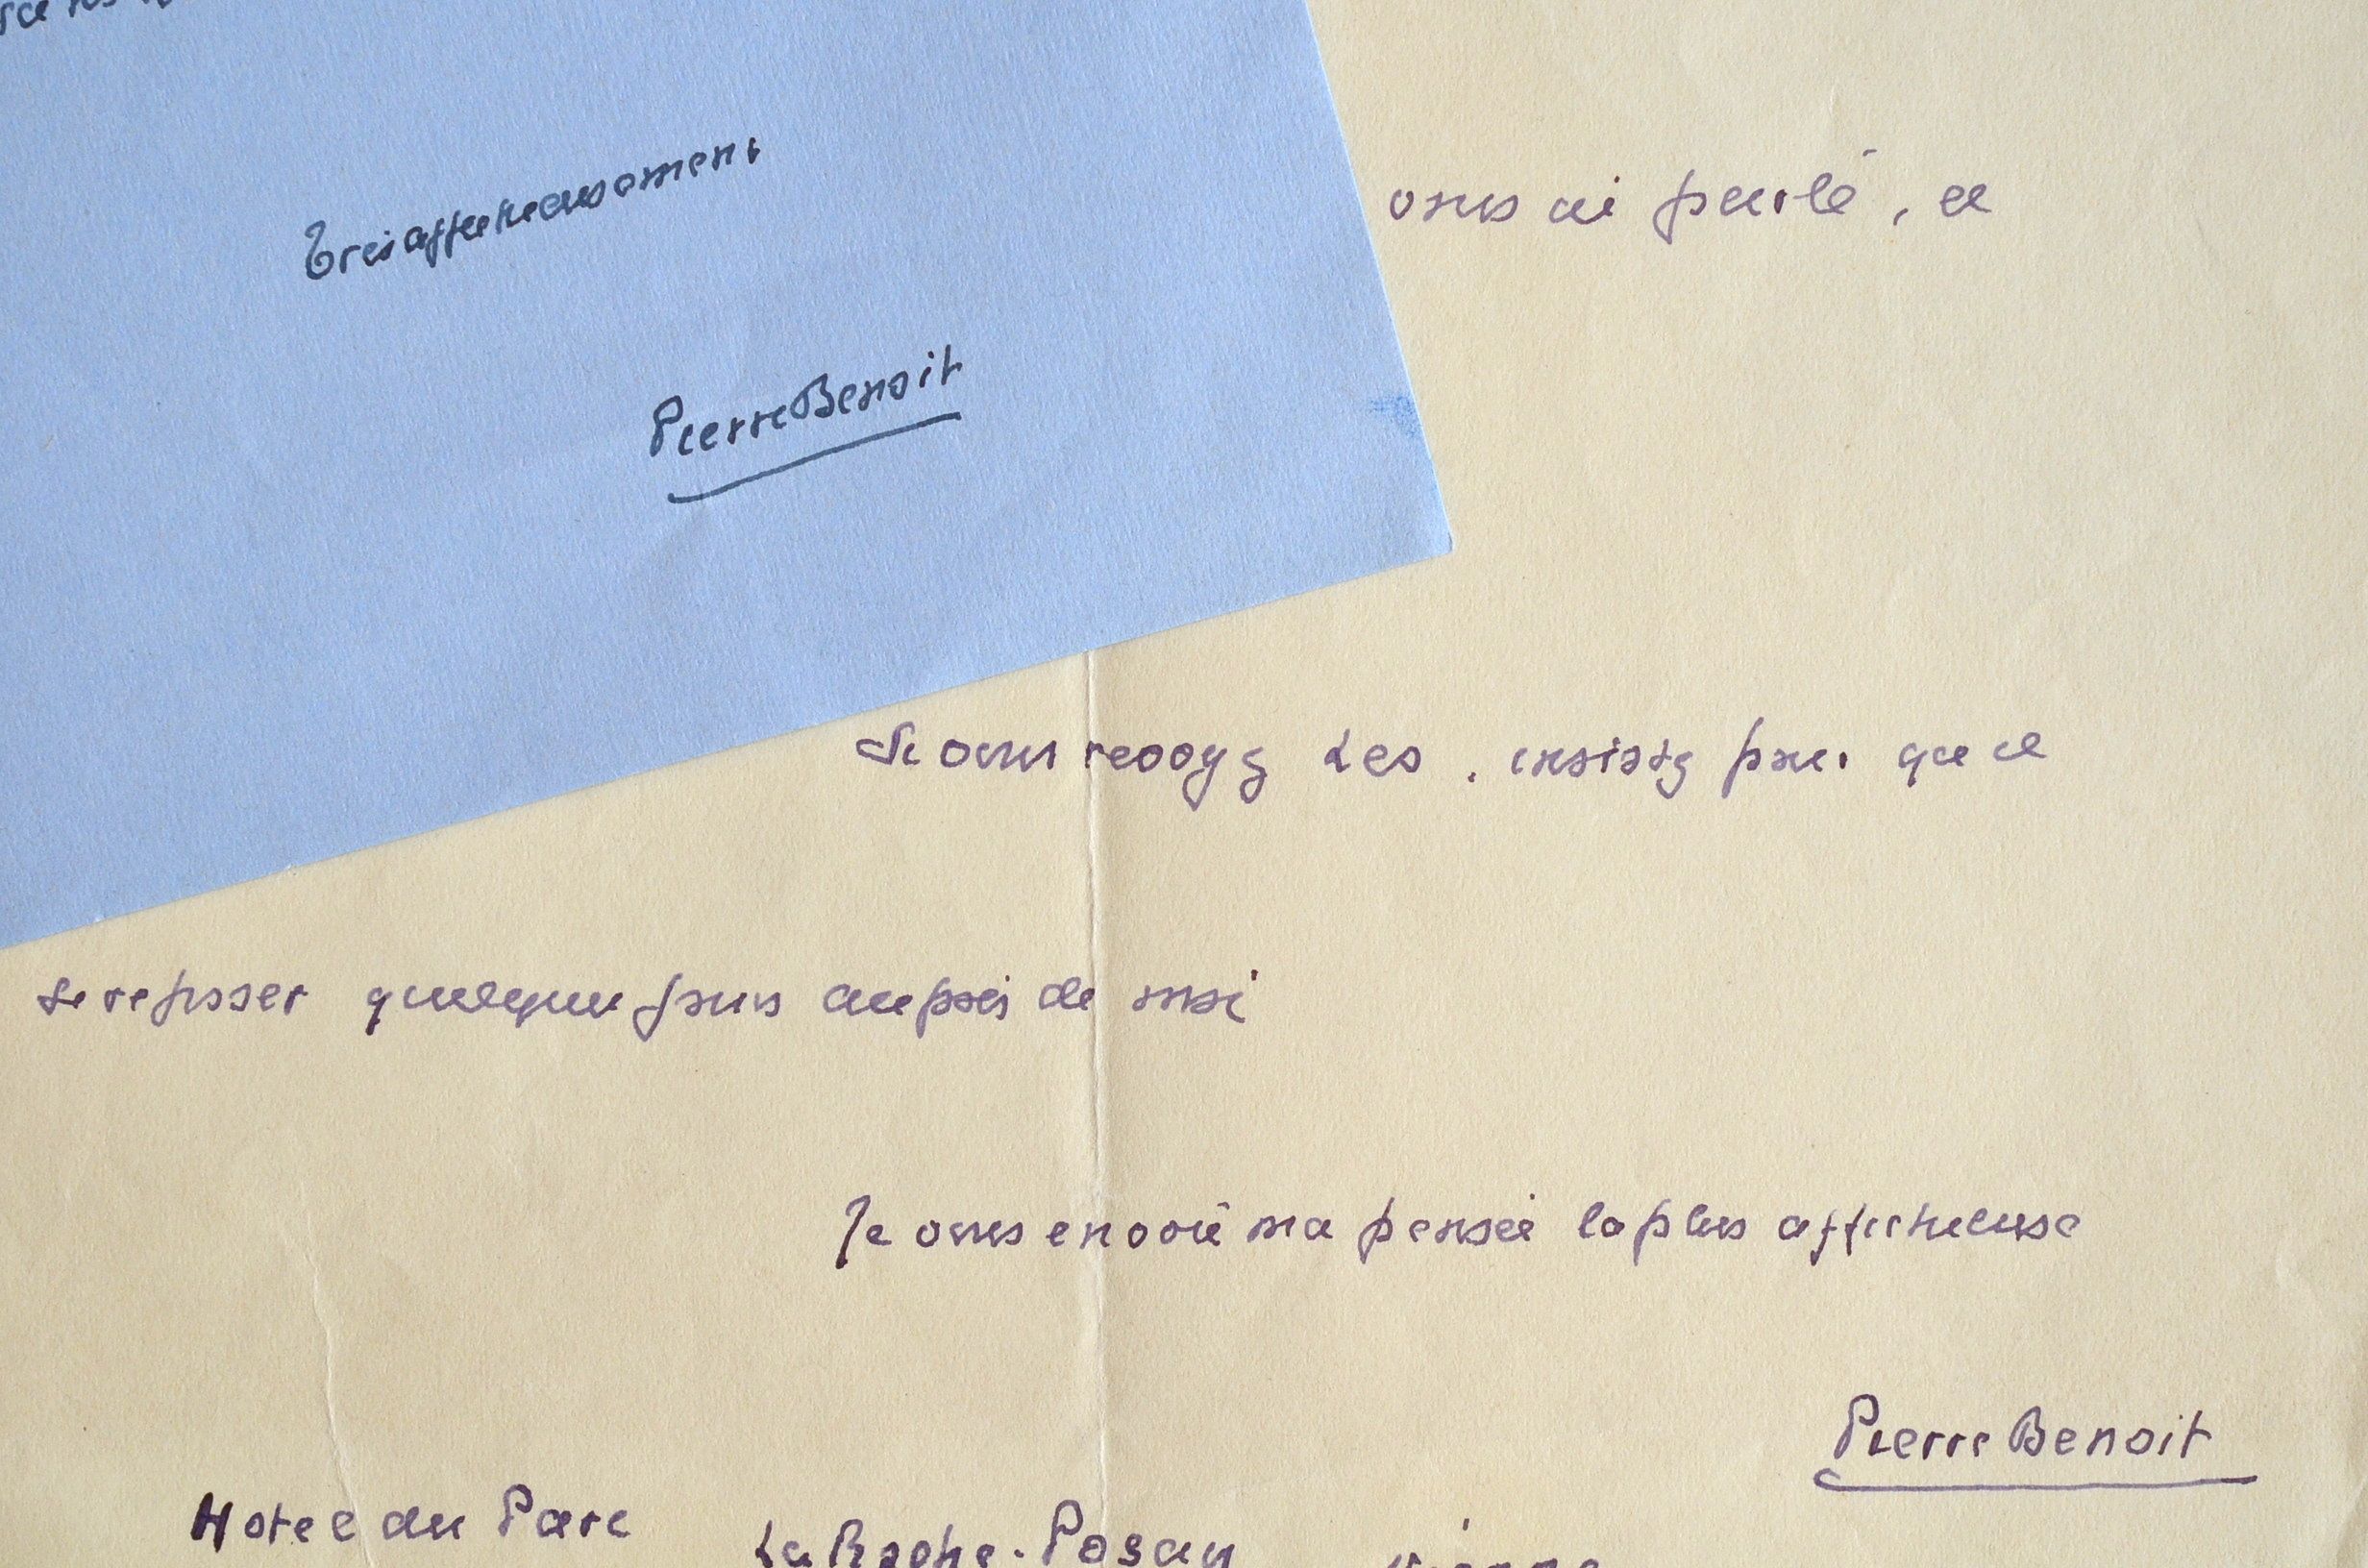 Très affectueusement
Pierre Benoit
vous ai parlé, et
Si vous voyez Leo, insistez pour que ce
se reposer quelques jours auprès de moi
Je vous envoie ma pensée la plus affectueuse
Pierre Benoit
Hotel du Parc
La Roche-Posay Vienne